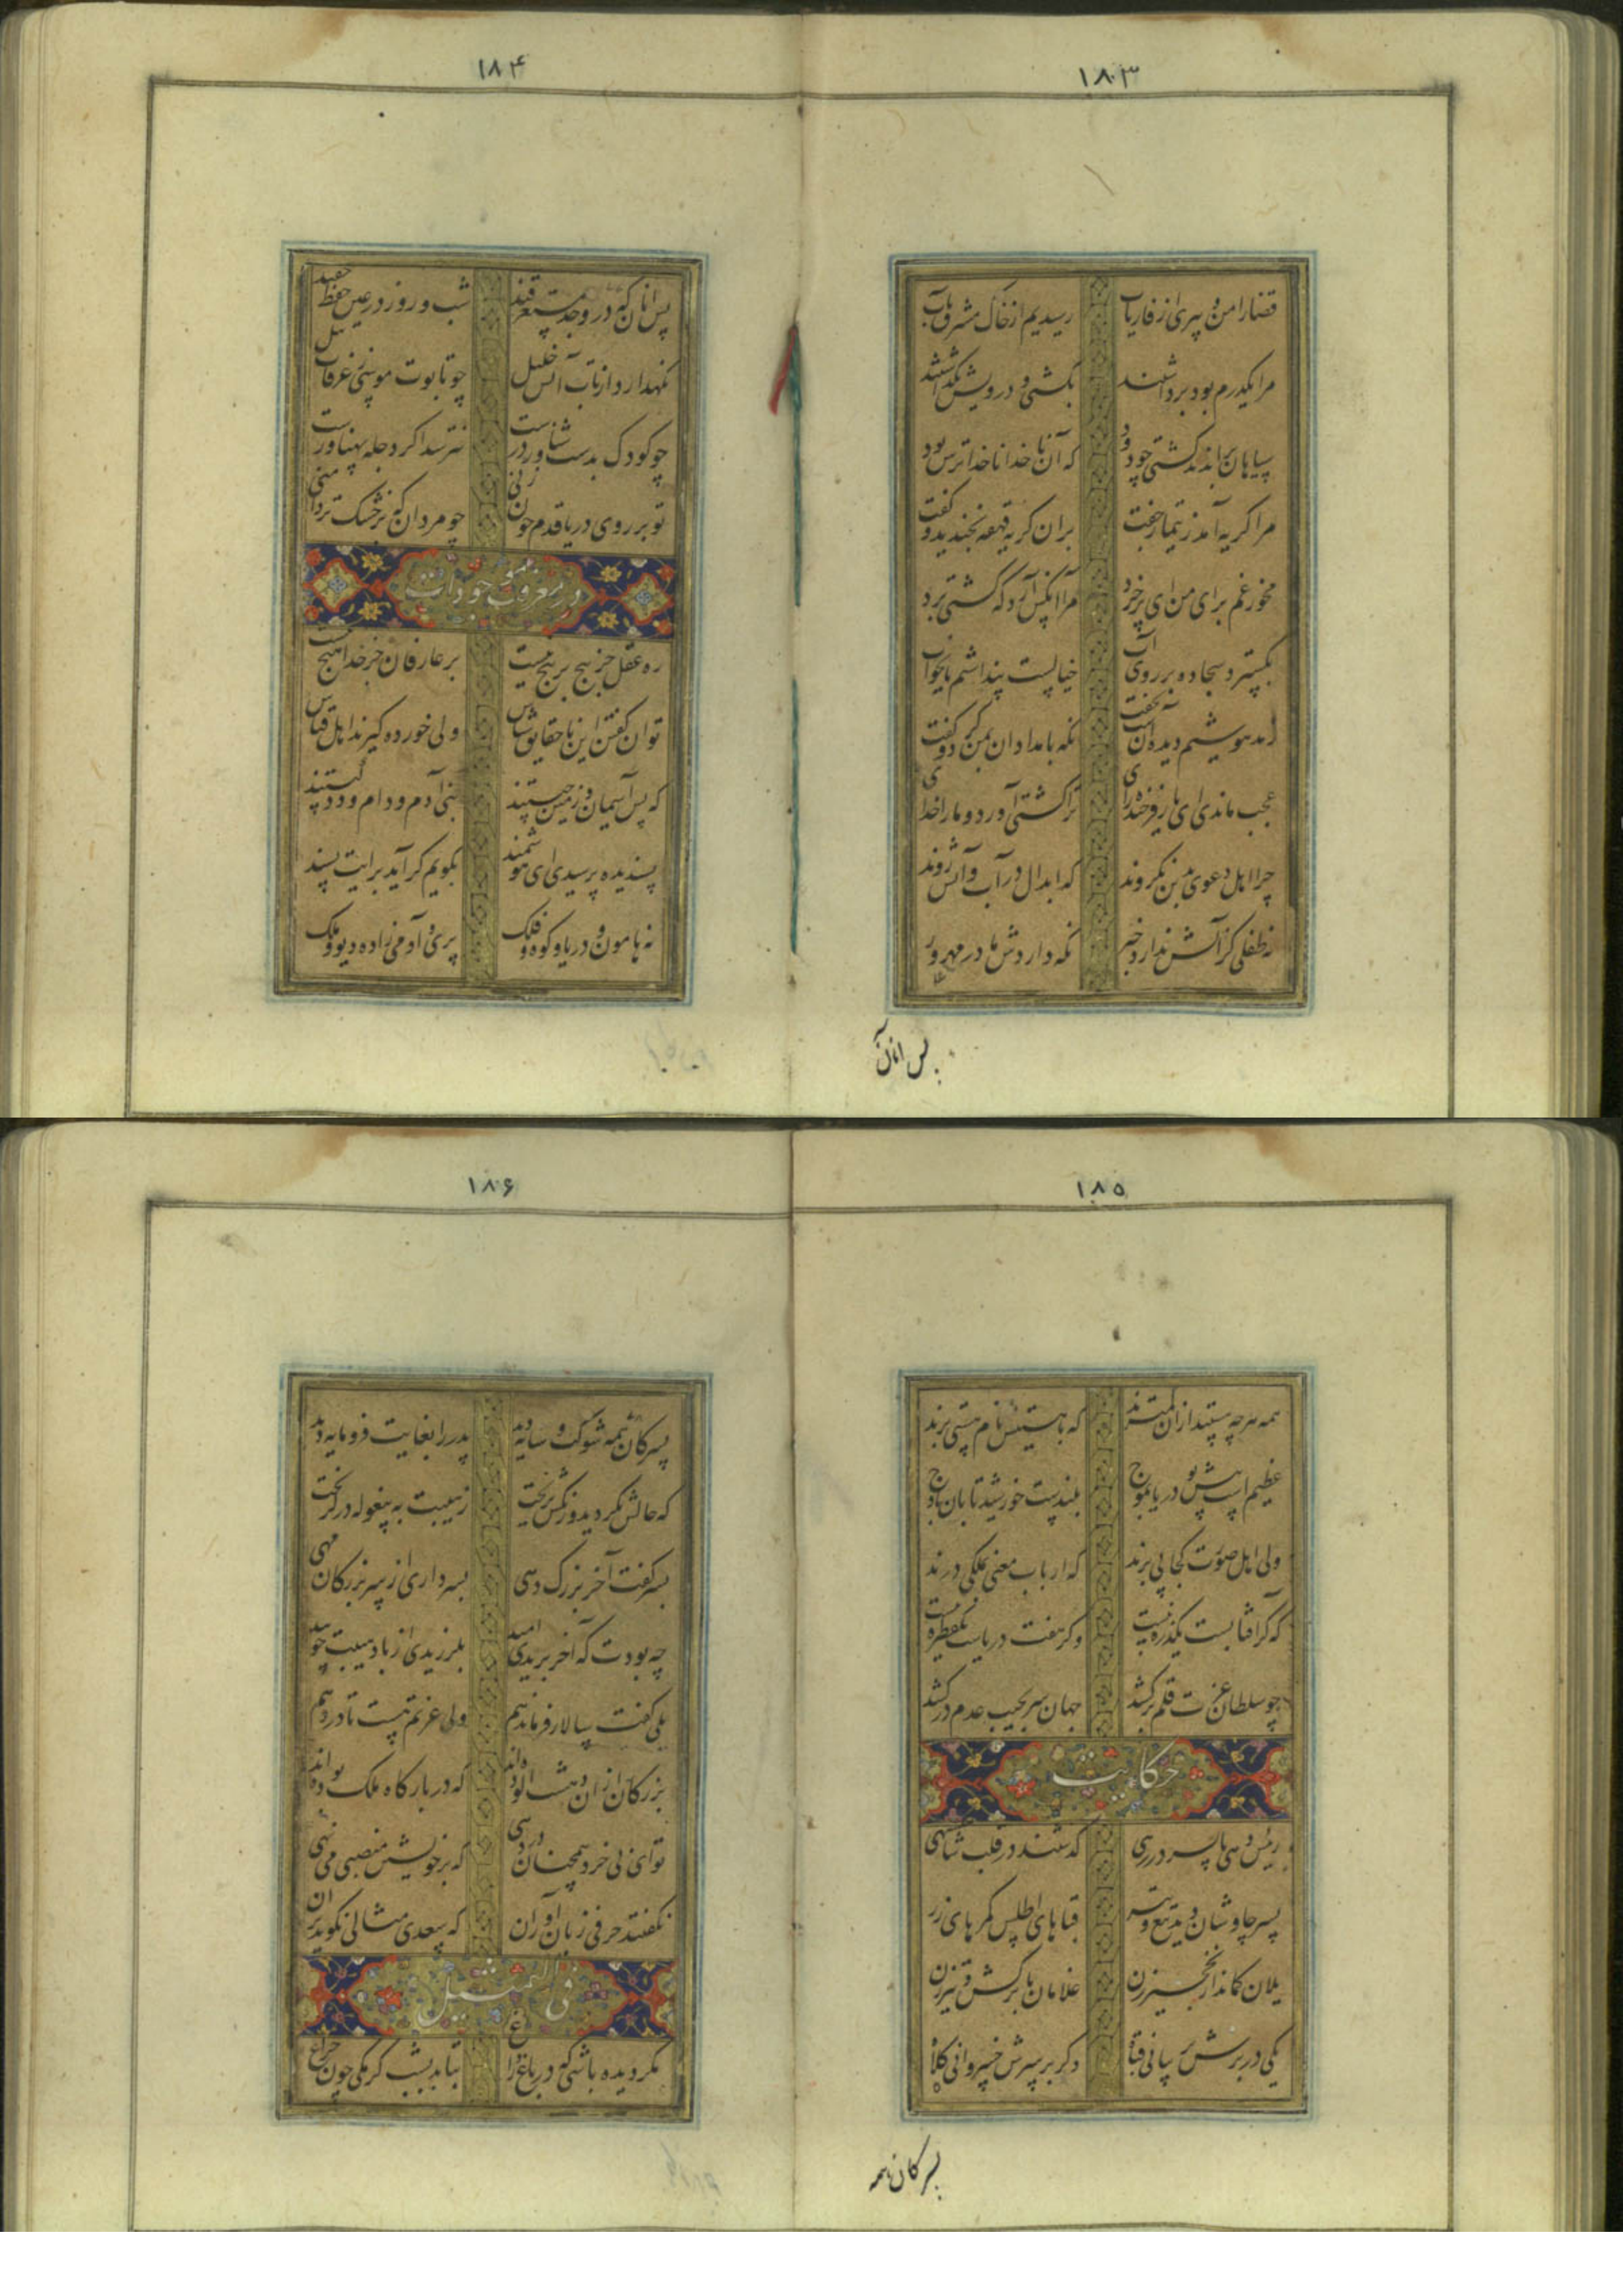 ۱۸۳
قضا را من و پیری از فاریاب رسیدیم از خاک مشرق بآب
مرا یکدرم بود برداشتند بکشتی و درویش بگذاشتند
سیاهان براندند کشتی چو دود که آن ناخدا ناخدا ترس بود
مرا گریه آمد ز تیمار جفت بران گریه قهقهه بخندید و گفت
مخور غم برای من ای پرخرد مرا آنکس آرد که کشتی برد
بگسترد سجاده بر روی آب خیالست پنداشتم یا بخواب
ز مدهوشیم دیده آن شب نخفت نگه بامدادان بمن کرد و گفت
عجب ماندی ای یار فرخنده رای ترا کشتی آورد و ما را خدای
چرا اهل دعوی بدین نگروند که ابدال در آب و آتش روند
نه طفلی کز آتش ندارد خبر نگه داردش مادر مهرور
پس آنان که
۱۸۴
پس آنان که در وجد مستغرقند شب و روز در عین حفظ حقند
نگهدارد از تاب آتش خلیل چو تابوت موسی ز غرقاب نیل
چو کودک بدست شناور درست نترسد اگر دجله پهناورست
تو بر روی دریا قدم چون زنی چو مردان که بر خشک تردامنی
در معرفت موجودات
ره عقل جز پیچ بر پیچ نیست بر عارفان جز خدا هیچ نیست
توان گفتن این با حقایق شناس ولی خورده گیرند اهل قیاس
که پس آسمان و زمین چیستند بنی آدم و دام و دد کیستند
پسندیده پرسیدی ای هوشمند بگویم گر آید برایت پسند
نه هامون و دریا و کوه و فلک پری و آدمی زاده و دیو و ملک
۱۸۵
همه هرچه هستند ازان کمترند که با هستیش نام هستی برند
عظیم است پیش تو دریا بموج بلندست خورشید تابان باوج
ولی اهل صورت کجا پی برند که ارباب معنی بملکی درند
که گر آفتابست یکذره نیست و گر هفت دریاست یکقطره نیست
چو سلطان عزت قلم برکشد جهان سر بجیب عدم درکشد
حکایت
رئیس دهی با پسر در رهی گذشتند در قلب شاهنشهی
پسر چاوشان دید و تیغ و تبر قباهای اطلس کمرهای زر
یلان کماندار نخجیرزن غلامان ترکش کش تیرزن
یکی در برش پرنیانی قباه دگر بر سرش خسروانی کلاه
پسر کان همه
۱۸۶
پسر کان همه شوکت و سایه دید پدر را بغایت فرومایه دید
که حالش بگردید و رنگش بریخت ز هیبت به پیغوله در گریخت
پسر گفت آخر بزرگ دهی بسرداری از سر بزرگان مهی
چه بودت که آخر بریدی امید بلرزیدی از باد هیبت چو بید
بلی گفت سالار فرماندهم ولی عزتم هست تا در دهم
بزرگان ازان دهشت آلوده اند که در بارگاه ملک بوده اند
تو ای بی خرد همچنان در دهی که بر خویشتن منصبی می نهی
نگفتند حرفی زبان آوران که سعدی مثالی نگوید بران
فی التمثیل
مگر دیده باشی که در باغ و راغ بتابد بشب کرمکی چون چراغ